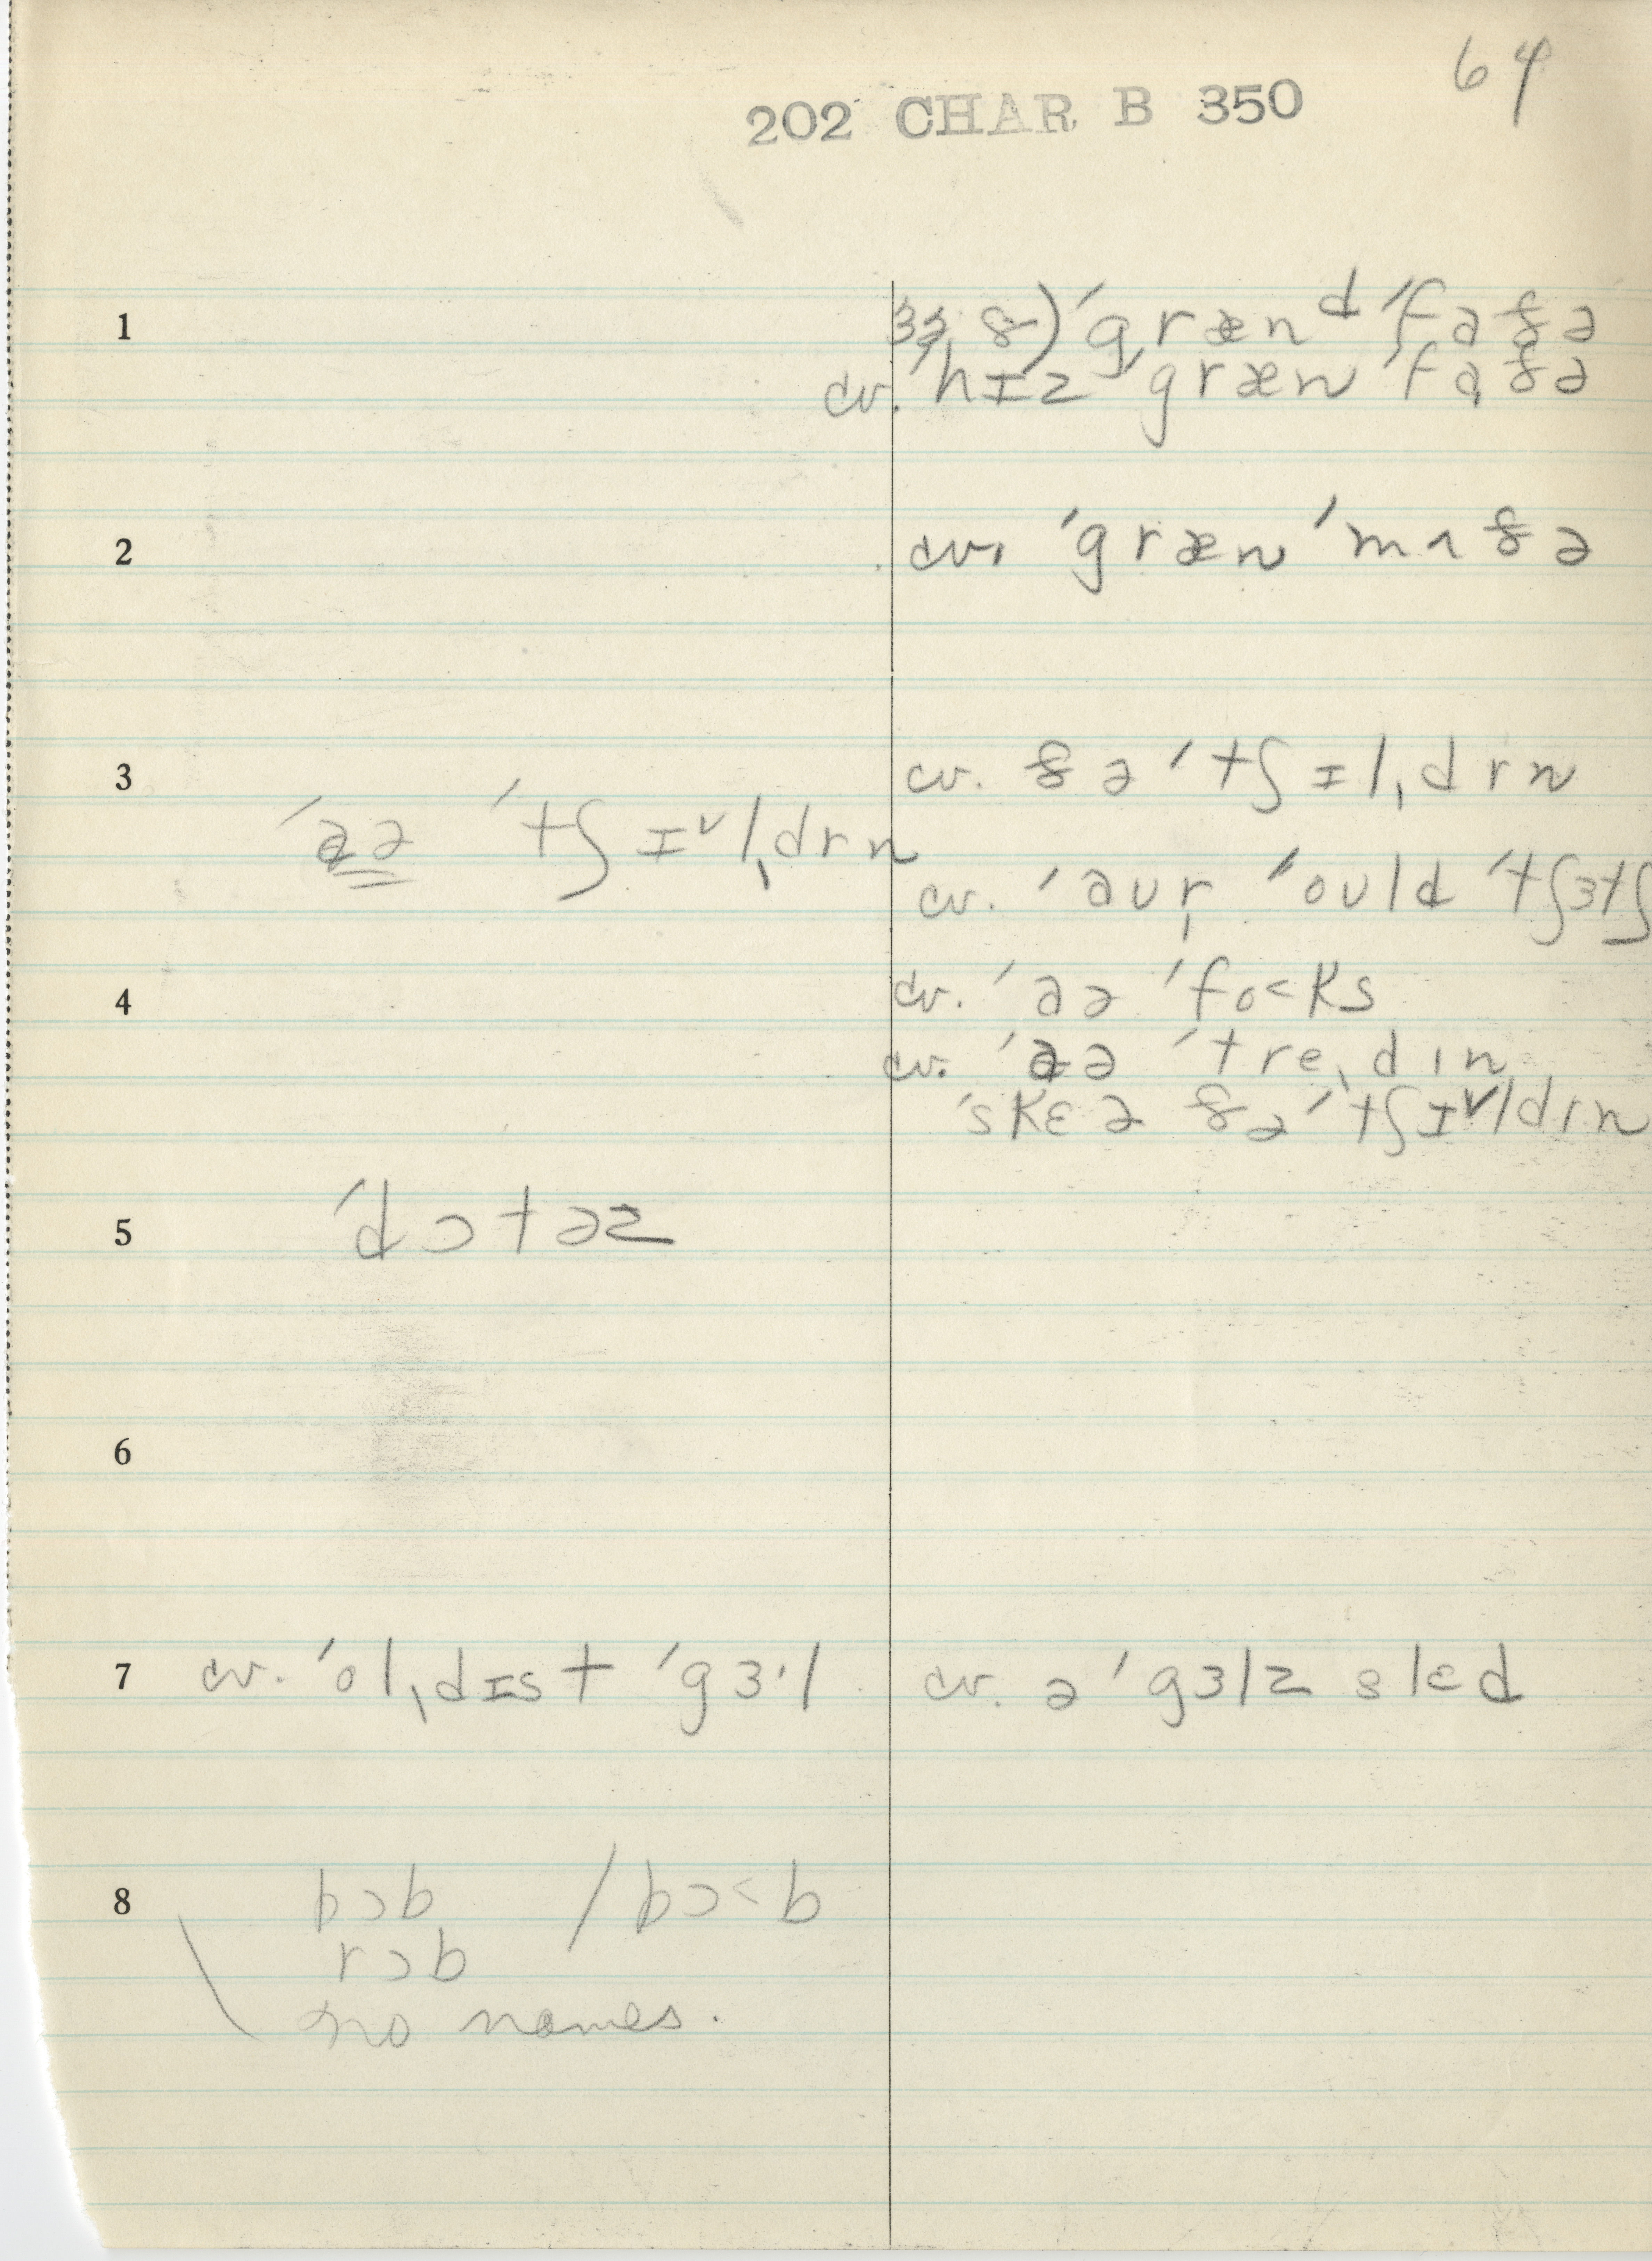 64
202 CHAR B 350
1 33, 8) ˈgrænᵈ ˈfaðə
cv. ˈhɪz ˈgræn ˈfaðə
2 cv. ˈgræn ˈmʌðə
3 cv. ðə ˈtʃɪl,drn
ˈaə ˈtʃɪ˅l,drn
cv. ˈaʊr, ˈoʊld ˈtʃɜtʃ
4 cv. ˈaə ˈfo<ks
cv. ˈaə ˈtre,dɪn
ˈskɛə ðə ˈtʃɪ˅ldrn
5 ˈdɔtəz
6
7 cv. ˈol,dɪst ˈgɜ·l cv. ə ˈgɜlz slɛd
8 bɔb / bɔ<b
rɔb
no names.